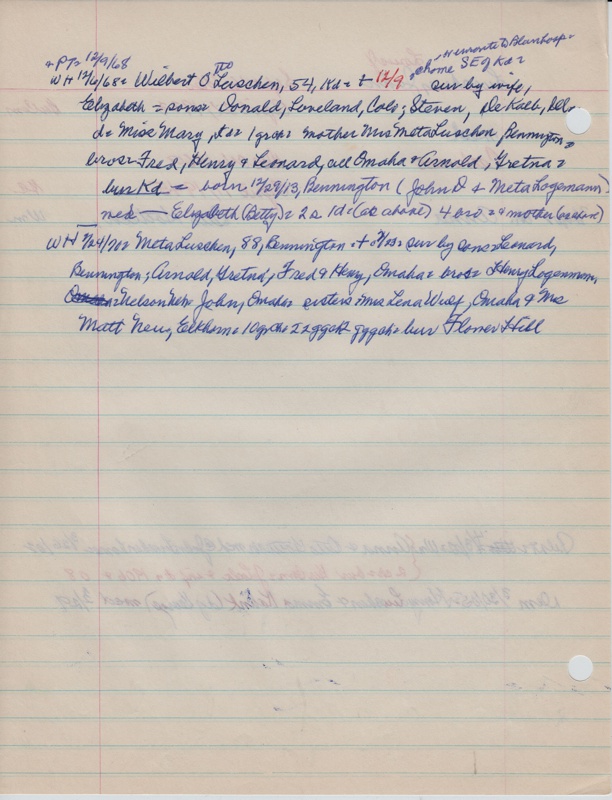 + PT= 12/9/68
WH 12/6/68= Wilbert O Luschen, 54, Kd= + 12/9 @ home SE of Kd= sur by wife,
Elizabeth = sons= Donald, Loveland, Colo; Steven, DeKalb,
d= Miss Mary, = 1 grch= mother Mrs Meta Luschen, Bennington=
bros= Fred, Henry & Leonard, all Omaha & Arnold, Gretna=
bur Kd = born 12/29/13, Bennington (John D & Meta Logemann)
med — Elizabeth (Betty)= 2s 1d= (as above) 4 bro = & mother (as above)
WH 7/24/70= Meta Luschen, 88, Bennington + = sur by sons Leonard,
Bennington; Arnold, Gretna; Fred & Henry, Omaha= bros= Henry Logemann,
Nelson Nebr John, Omaha= sisters= Mrs Lena Wulf, Omaha & Mrs
Matt Neu, Elkhorn= 10 grch= 22 ggch gggch= bur Flower Hill